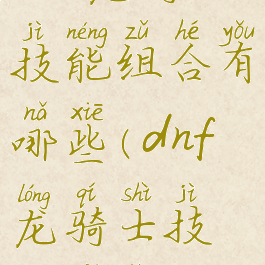 jì néng zǔ hé yǒu
技能组合有
nǎ xiē
哪些(dnf
lóng qí shì jì
龙骑士技